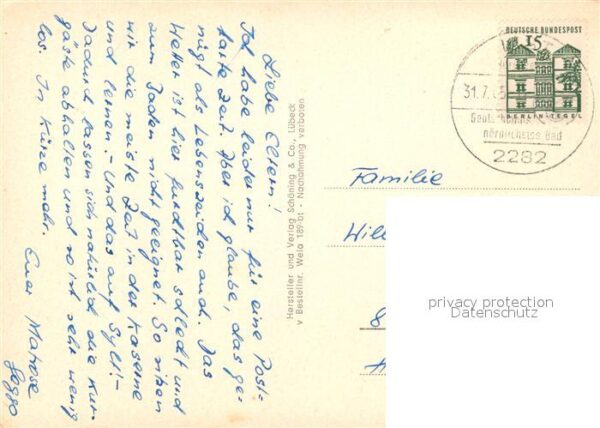 Liebe Eltern!
Ich habe leider nur für eine Post-
karte Zeit. Aber ich glaube, das ge-
nügt als Lebenszeichen auch. Das
Wetter ist hier furchtbar schlecht und
zum Baden nicht geeignet. So sitzen
wir die meiste Zeit in der Kaserne
und lernen.- Und das auf Sylt!-
Dadurch lassen sich natürlich die Kur-
gäste abhalten und so ist sehr wenig
los. In Kürze mehr.
Euer Matrose
Hersteller und Verlag Schöning & Co., Lübeck
v Bestellnr. Wela 189 bt - Nachahmung verboten
DEUTSCHE BUNDESPOST
15
BERLIN-TEGEL
31.7.
Bad
2282
Familie
privacy protection
Datenschutz